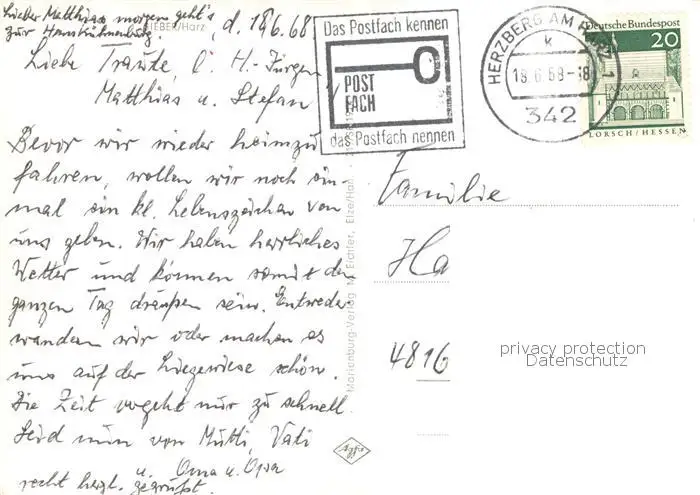 Lieber Matthias morgen geht's
zur Hanskühnenburg.
SIEBER/Harz
, d. 18.6.68
Liebe Traute, l. H.-Jürgen
Matthias u. Stefan
Bevor wir wieder heimzu
fahren, wollen wir noch ein-
mal ein kl. Lebenszeichen von
uns geben. Wir haben herrliches
Wetter und können somit den
ganzen Tag draußen sein. Entweder
wandern wir oder machen es
uns auf der Liegewiese schön.
Die Zeit vergeht nur zu schnell.
Seid nun von Mutti, Vati
u. Oma u. Opa
recht herzl. gegrüßt.
Das Postfach kennen
POST
FACH
das Postfach nennen
HERZBERG AM HARZ 1
k
18.6.68-18
342
Deutsche Bundespost
20
LORSCH/HESSEN
Familie
Ha
4816
Marienburg-Verlag M. Eichler, Elze/Han.
Agfa
privacy protection
Datenschutz